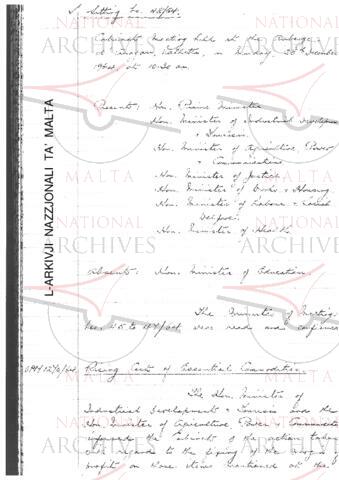 Sitting No. 45/64.
Cabinet meeting held at the Auberge
d'Aragon, Valletta, on Monday, 28th December
1964, at 10.30 am.
Present: Hon. Prime Minister
Hon. Minister of Industrial Development
& Tourism
Hon. Minister of Agriculture, Power
& Communications
Hon. Minister of Justice
Hon. Minister of Works & Housing
Hon. Minister of Labour & Social
Welfare
Hon. Minister of Health
Absent: Hon. Minister of Education.
The Minutes of Meeting
Nos. to 44/64 were read and confirmed
OPM 1270/64. Rising Cost of Essential Commodities.
The Hon. Minister of
Industrial Development & Tourism and the
Hon. Minister of Agriculture, Power & Communications
informed the Cabinet of the action taken
with regards to the fixing of the margin of
profit on those items mentioned at the
L-ARKIVJI NAZZJONALI TA' MALTA
NATIONAL
ARCHIVES
MALTA